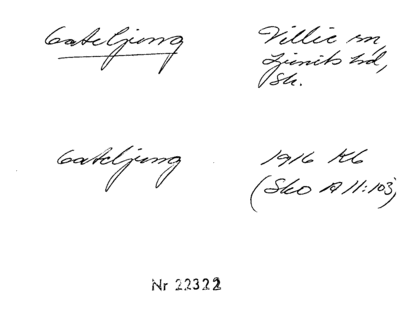 Gateljung Villie sn,
Ljunits hd,
Sk.
Gateljung 1916 Kb
(Sko A 11:103)
Nr 22322